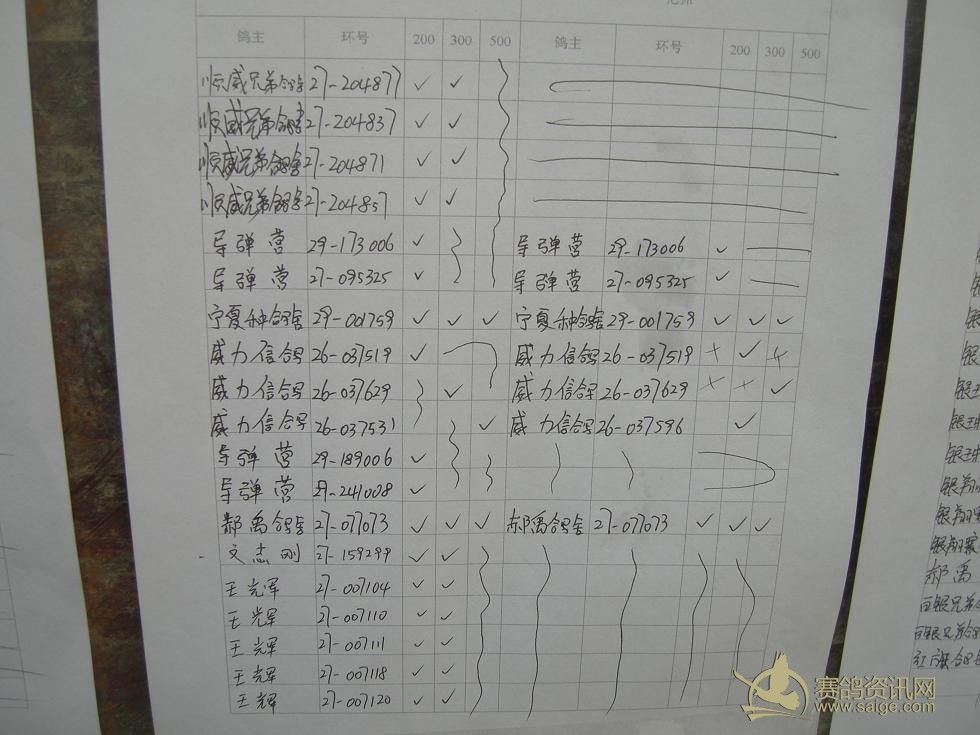 鸽主 环号 200 300 500 鸽主 环号 200 300 500
顺威兄弟鸽舍 27-204877 ✓ ✓
顺威兄弟鸽舍 27-204837 ✓ ✓
顺威兄弟鸽舍 27-204871 ✓ ✓
顺威兄弟鸽舍 27-204857 ✓ ✓
导弹营 29-173006 ✓ 导弹营 29-173006 ✓
导弹营 27-095325 ✓ 导弹营 27-095325 ✓
宁夏种鸽舍 29-001759 ✓ ✓ ✓ 宁夏种鸽舍 29-001759 ✓ ✓ ✓
威力信鸽 26-037519 ✓ 威力信鸽 26-037519 × ✓ ×
威力信鸽 26-037629 ✓ 威力信鸽 26-037629 × × ✓
威力信鸽 26-037531 ✓ 威力信鸽 26-037596 ✓
导弹营 29-189006 ✓
导弹营 29-241008 ✓
郝禹鸽舍 27-077073 ✓ ✓ ✓ 郝禹鸽舍 27-077073 ✓ ✓ ✓
文志刚 27-159299 ✓ ✓
王光辉 27-007104 ✓ ✓
王辉 27-007110 ✓ ✓
王辉 27-007111 ✓ ✓
王辉 27-007118 ✓ ✓
王辉 27-007120 ✓ ✓
郝禹
赛鸽资讯网
www.saige.com